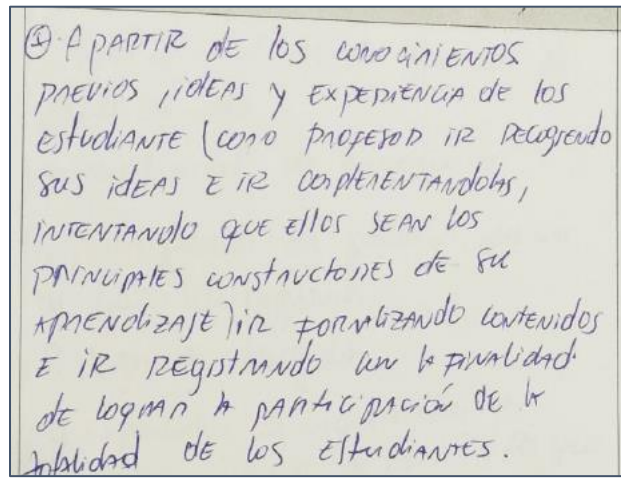 ① A PARTIR dE los conocimiENTOS
PREVIOS, idEAS y EXPERIENCIA de los
EstudiANTE (como PROFESOR iR RECOgiENdO
SUS idEAS E iR complEMENTANdolAS,
INTENTANdO QUE Ellos SEAN los
PRINCIPALES CONSTRUCTORES dE SU
APRENdizAJE) iR FORMALiZANDO CONTENidos
E iR REGISTRANdO con la FINALidAd
dE LOGRAR lA PARTICIPACIÓN DE lA
totAlidAd dE los EStudiANTES.